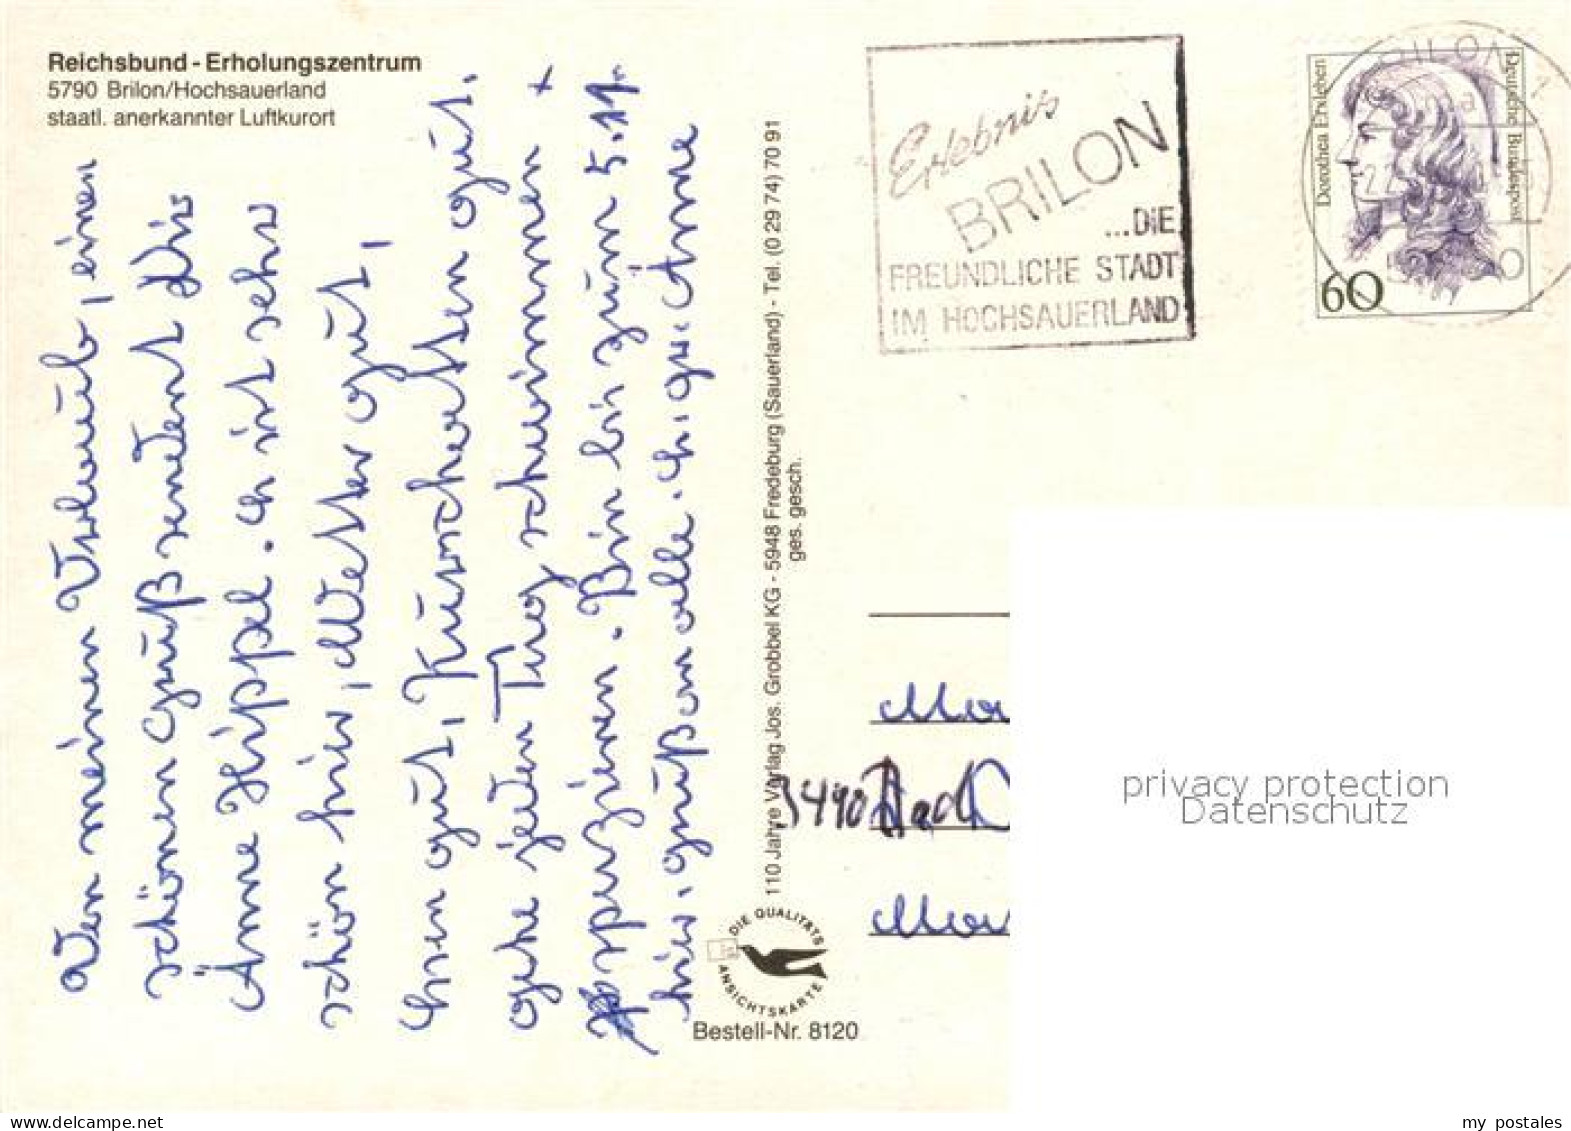 Reichsbund - Erholungszentrum
5790 Brilon/Hochsauerland
staatl. anerkannter Luftkurort
Von meinem Urlaub, einen
schönen Gruß sendent Dir
Änne Hippel. Es ist sehr
schön hier, Wetter gut,
Essen gut, Kurschatten gut.
gehe jeden Tag schwimmen +
spazieren. Bin bis zum 5.11.
hier. Gruß an alle. H. gr. Änne
110 Jahre Verlag Jos. Grobbel KG - 5948 Fredeburg (Sauerland) - Tel. (0 29 74) 70 91
ges. gesch.
DIE QUALITÄTS
ANSICHTSKARTE
Bestell-Nr. 8120
Erlebnis
BRILON
...DIE
FREUNDLICHE STADT
IM HOCHSAUERLAND
BRILON 1
Dorothea Erxleben
Deutsche Bundespost
60
3490 Bad
privacy protection
Datenschutz
my_postales